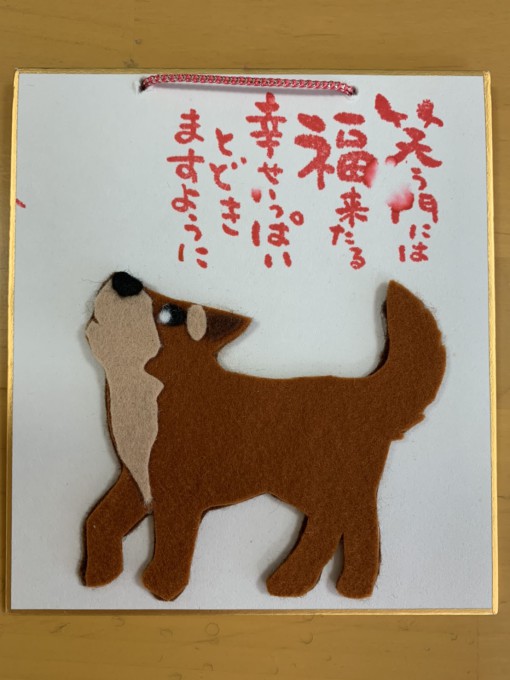 笑う門には
福来たる
幸せいっぱい
とどき
ますように